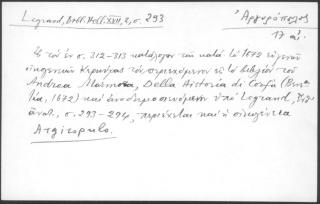 Legrand, Bibl. Hell. XVII, 2, σ. 293
Ἀργυρόπουλος
17 αἰ.
Ἐς τὸν ἐν σ. 312-313 κατάλογον τῶν κατὰ τὸ 1672 εὐγενῶν
οἰκογενειῶν Κερκύρας τὸν περιεχόμενον εἰς τὸ βιβλίον τοῦ
Andrea Marmora, Della Historia di Corfù (Βενε-
τία, 1672) καὶ ἀναδημοσιευόμενον ὑπὸ Legrand,
ἀνωτ., σ. 293-294, περιέχεται καὶ ἡ οἰκογένεια
Argiropulo.